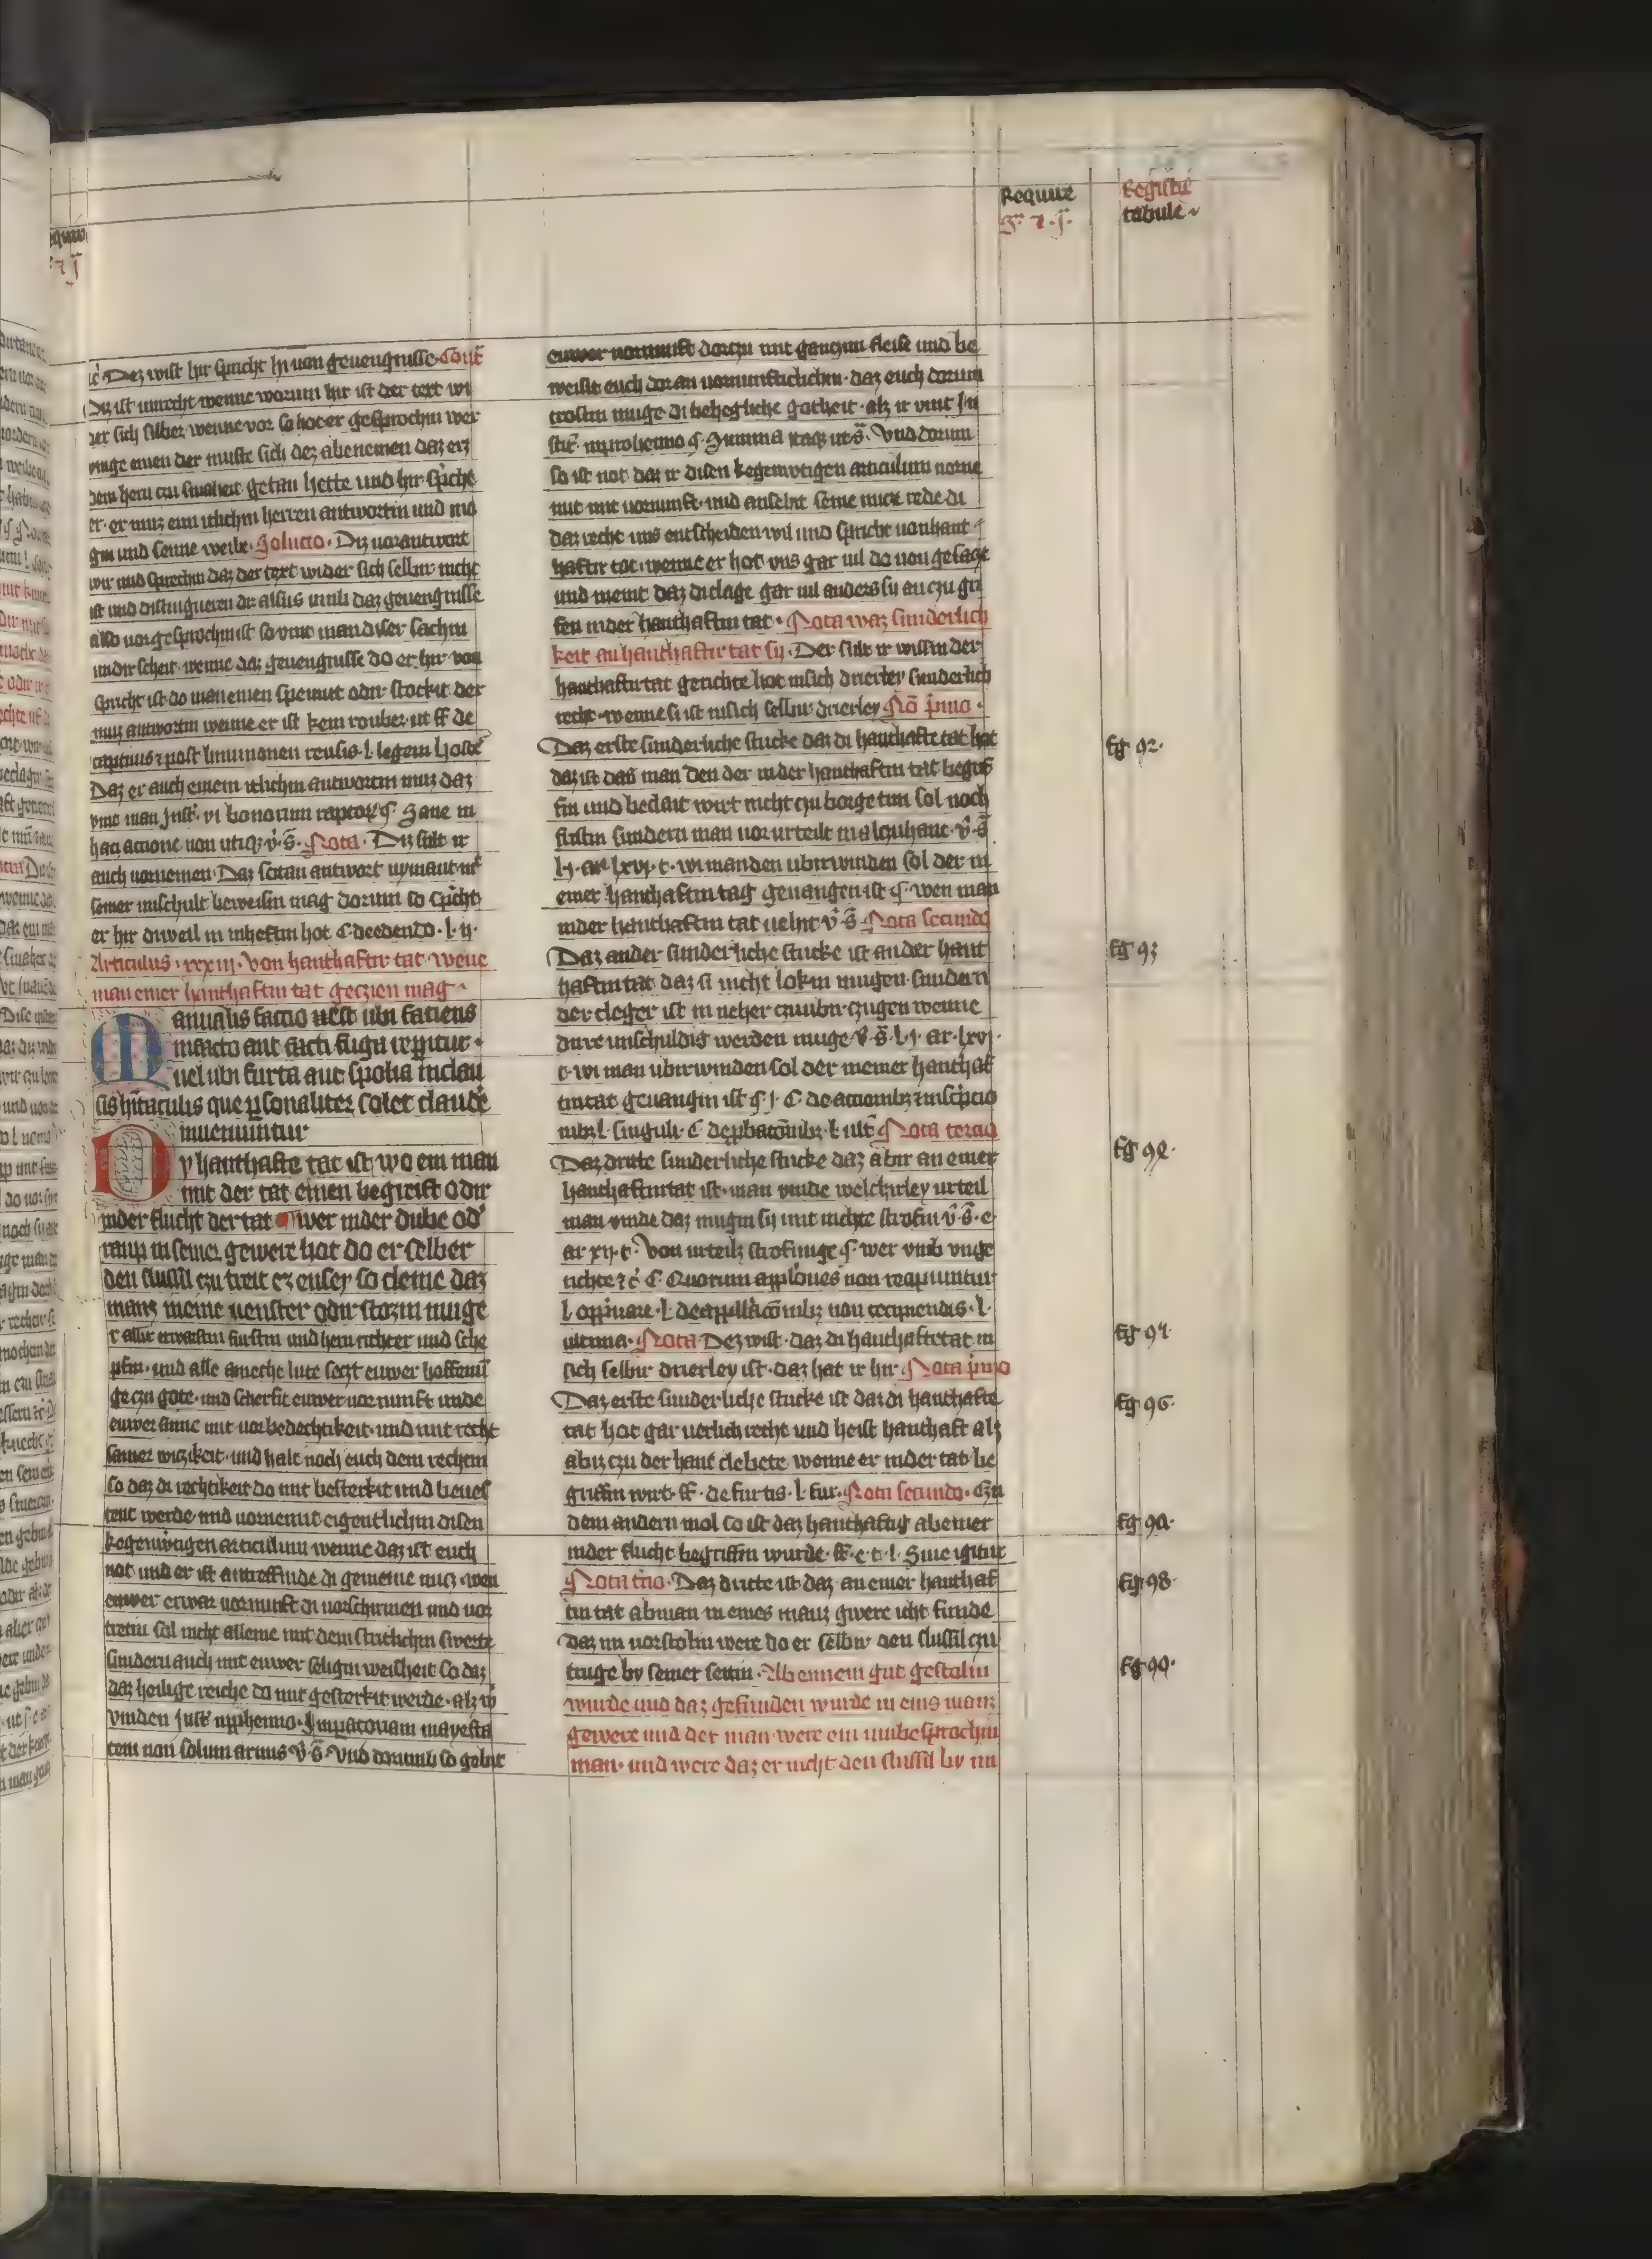 Require
g̃. ⁊ .j̄.
Registrum
tabule
ić Dez wist hir spricht hi von geuengnisse. Contra
Diz ist unrecht wenne worum hir ist der text wi
der sich selber wenne vor so hot er gesprochin wer
vinge einen der muste sich dez abenemen daz erz
dem hern czu smaheit getan hette und hir spricht
er. er muz eim itlichim herren antwortin und mo
gin und seime weibe. Solucio. Diz vorantwort
wir und sprechin daz der text wider sich selbir nicht
ist und distingueren di alsus umb daz geuengnisse
also vorgesprochin ist so vint man diser sachin
undir scheit. wenne daz geuengnisse do er hir von
spricht ist do man einen spennit odir stockit der
muz antwortin wenne er ist kein rouber. ut ff de
captiuis ⁊ post liminionen reusis. l. legem hoste
Daz er auch einem itlichim antwortin muz daz
vint man Just. vi bonorum raptor. §. Sane in
hac actione non utiq; v̊. s̃. Nota. Diz sult ir
auch vornemen. Daz sotan antwort nymant mit
seiner unschult beweisin mag dorum so spricht
er hir diweil in inheftin hot. C deedendo. l. ij.
Articulus. xxxiij. Von hanthaftir tat wenne
man einer hanthaftin tat geczien mag.
Manualis factio est ubi faciens
infacto aut facti fuga reperitur.
uel ubi furta aut spolia inclau
sis hitaculis que personaliter solet claude
inueniuntur
Dy hanthafte tat ist wo ein man
mit der tat einen begreift odir
inder flucht der tat wer inder dube od'
raup in seiner gewere hot do er selber
den slussil czu treit ez ensey so cleine daz
manz in eine venster odir stozin muge
r allir erwarstin furstin und hern richter und sche
pfin. und alle ameche lute seczt euwer hoffenun
ge czu gote. und scherfit euwer vornunft unde
euwer sinne mit vorbedechtikeit. und mit recht
samer wiczikeit. und halt noch euch dem rechtin
so daz di rechtikeit do mit besterkit und beues
tent werde und vornemit eigentlichin disen
kegenwortigen articulum wenne daz ist euch
not und er ist antreffinde di gemeine nucz. wen
euwer erwar vornunft di vorschirmen und vor
tretin sol nicht alleine mit dem stetlichin swerte
sundern auch mit euwer seligin weisheit so daz
daz heilige reiche do mit gesterkit werde. alz ir
vinden Just. inprohemio. Imperatoriam mayesta
tem non solum armis v̊. s̃. Und dorumb so gebit
euwer vornunft dorczu mit ganczim fleise und be
weisit euch doran vornunfticlichin. daz euch dorum
trostin muge di behegliche gotheit. alz ir vint In
stit. inprohemio §. Summa itaq; ut s̃. Und dorum
so ist not daz ir disen kegenwtigen articulum neme
nit mit vornunft. und ansehit seine nucze rede di
daz recht uns entscheiden wil und spricht von hant
haftir tat. wenne er hot uns gar vil do von gesagt
und meint daz di clage gar vil anders sij an czu gri
fen inder hanthaftin tat. Nota waz sunderlich
keit an hanthaftir tat sij. Der sult ir wissin der
hanthaftir tat gerichte hot insich drierley sunderlich
recht. wenne si ist insich selbir drierley No primo.
Daz erste sunderliche stucke daz di hanthafte tat hot
daz ist daz man den der inder hanthaftin tat begrif
fin und bedait wirt nicht czu borge tun sol noch
fristin sundern man vorurteilt in alczuhant. v̊. s̃.
l. ij. ar. lxvj. c. wi man den ubirwinden sol der in
einer hanthaftin tag geuangen ist §. wen man
inder hanthaftin tat uehit v̊. s̃. Nota secundo
Daz ander sunderliche stucke ist an der hant
haftin tat daz si nicht lokin mugen. sundern
der cleger ist in neher czuubir czugen wenne
dirre unschuldig werden muge. v̊. s̃. l. j. ar. lxvj.
c. wi man ubirwinden sol der in einer hanthaf
tintat geuangin ist §. j. C. de accionibz ⁊ inscipcio
nibz l. singuli. C deprobacionibz. l. ult. Nota tercio
Daz dritte sunderliche stucke daz abir an einer
hanthaftirtat ist. man vinde welchirley urteil
man vinde daz mugin sij mit nichte strofin v̊. s̃. e.
ar. xij. c. Von urteilz strofunge §. wer umb unge
richte ⁊ć C. Quorum appelloues non recipiuntur
l. oppinare. l. deappellacionibz non recipiendis. l.
ultima. Nota Dez wist. daz di hanthaftetat in
sich selbir drierley ist. daz hat ir hir. Nota primo
Daz erste sunderliche stucke ist daz di hanthafte
tat hot gar uerlich recht und heist hanthaft alz
abiz czu der hant clebete. wenne er inder tat be
griffin wirt. ff. de furtis. l. fur. Nota secundo. Czu
dem andern mol so ist daz hanthaftig abe iner
inder flucht begriffin wurde. ff. e. t. l. Siue igitur
Nota tercio. Daz dritte ist daz. an einer hanthaf
tin tat abman in eines manz gwere icht funde
daz im vorstolin were do er selbir den slussil czu
truge by seiner seitin. Ab ennem gut gestolin
wurde und daz gefunden wurde in eins manz
gewere und der man were ein unbesprochin
man. und were daz er nicht den slussil by im
Eg 92.
Eg 93
Eg 94.
Eg 95
Eg 96.
Eg 97.
Eg 98.
Eg 99.